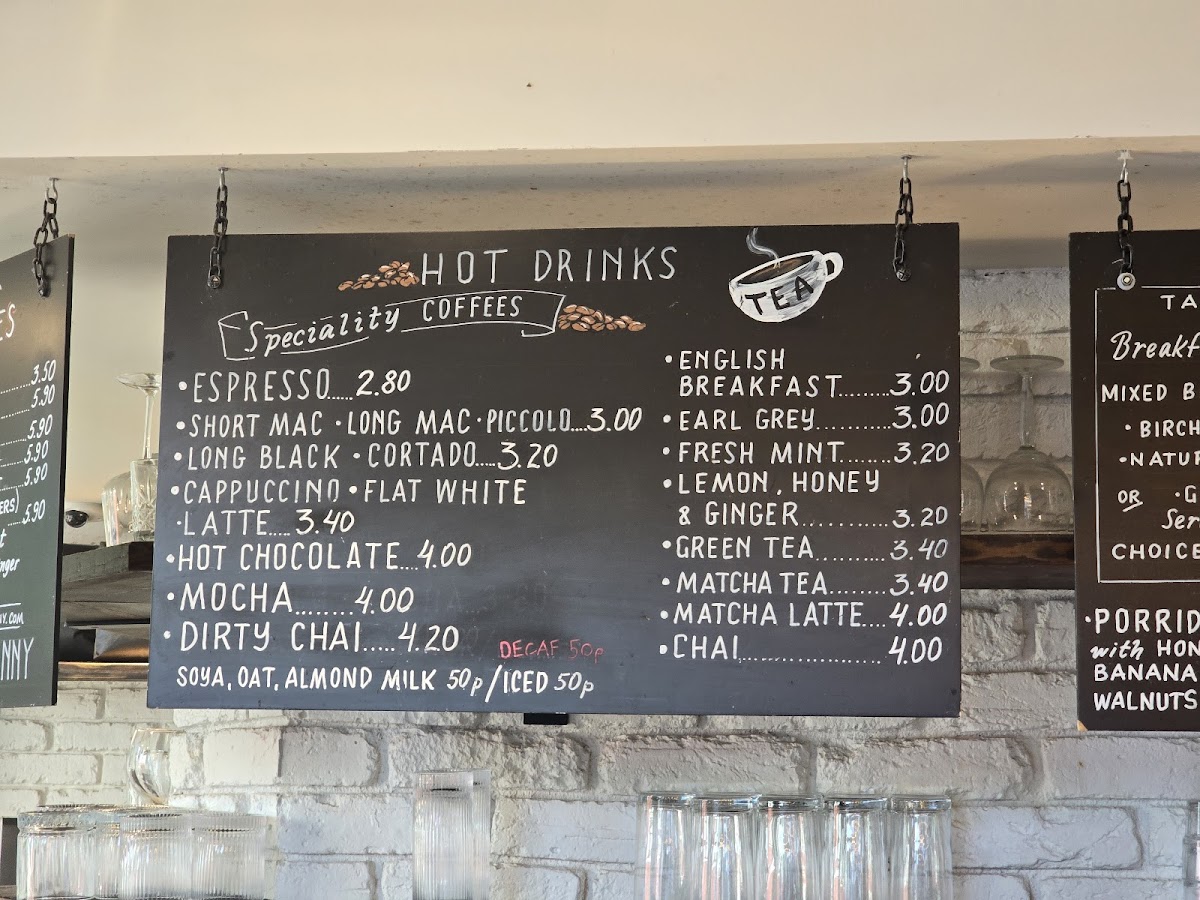 3.50
5.90
5.90
5.90
5.90
5.90
HOT DRINKS
Speciality COFFEES
•ESPRESSO.....2.80
•SHORT MAC •LONG MAC•PICCOLO....3.00
•LONG BLACK •CORTADO....3.20
•CAPPUCCINO •FLAT WHITE
•LATTE.....3.40
•HOT CHOCOLATE....4.00
•MOCHA........4.00
•DIRTY CHAI.....4.20
DECAF 50p
SOYA, OAT, ALMOND MILK 50p/ICED 50p
TEA
•ENGLISH
BREAKFAST.........3.00
•EARL GREY...........3.00
•FRESH MINT.......3.20
•LEMON, HONEY
& GINGER...........3.20
•GREEN TEA..........3.40
•MATCHA TEA........3.40
•MATCHA LATTE....4.00
•CHAI....................4.00
MIXED B
•BIRCH
•NATUR
OR •G
Ser
CHOICE
•PORRID
with HON
BANANA
WALNUTS